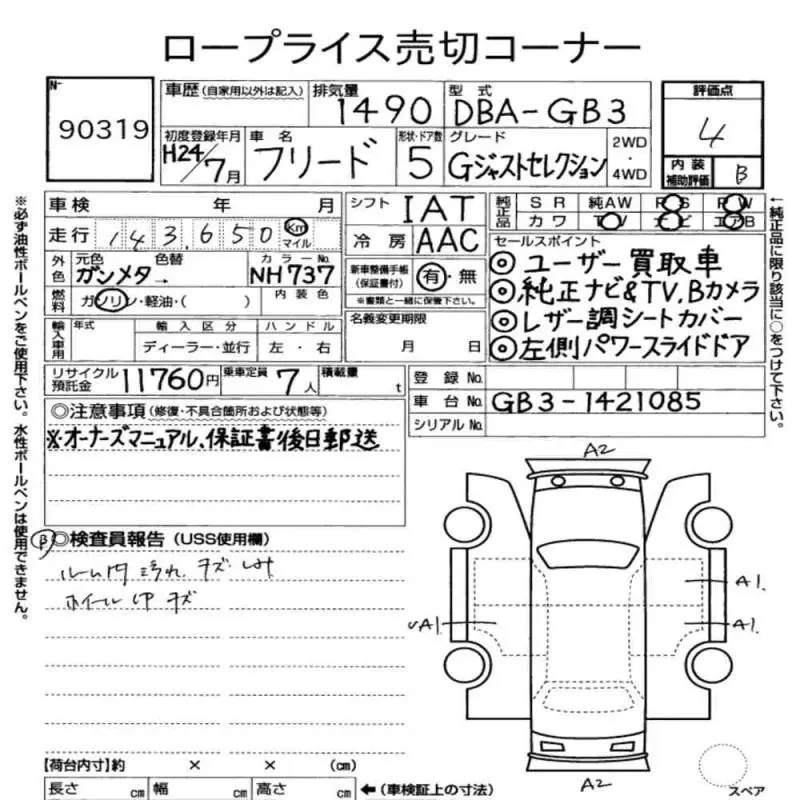 ロープライス売切コーナー
№ 90319
車歴 (自家用以外は記入) 排気量 1490 型式 DBA-GB3 評価点 4
初度登録年月 H24/7月 車名 フリード 形状・ドア数 5 グレード Gジャストセレクション 2WD・4WD 内装補助評価 B
車検 年 月 シフト IAT 純正品 SR 純AW PS PW
走行 143,650 Km マイル 冷房 AAC カワ TV ナビ エアB
外色 元色 ガンメタ 色替 → カラーNo. NH737 新車整備手帳(保証書付) 有・無
※書類と一緒に保管下さい。
燃料 ガソリン・軽油・( ) 内装色
輸入車用 年式 輸入区分 ハンドル 名義変更期限
ディーラー・並行 左・右 月 日
セールスポイント
◎ユーザー買取車
◎純正ナビ&TV.Bカメラ
◎レザー調シートカバー
◎左側パワースライドドア
リサイクル預託金 11760円 乗車定員 7人 積載量 t
登録No.
車台No. GB3-1421085
シリアルNo.
◎注意事項(修復・不具合箇所および状態等)
※オーナーズマニュアル、保証書後日郵送
B ◎検査員報告(USS使用欄)
ルーム内 汚れ キズ
ホイール キズ
A2
A1.
A1.
A1
A2
スペア
【荷台内寸】約 × × (cm)
長さ cm 幅 cm 高さ cm ←(車検証上の寸法)
※必ず油性ボールペンをご使用下さい。水性ボールペンは使用できません。
←純正品に限り該当に○をつけて下さい。